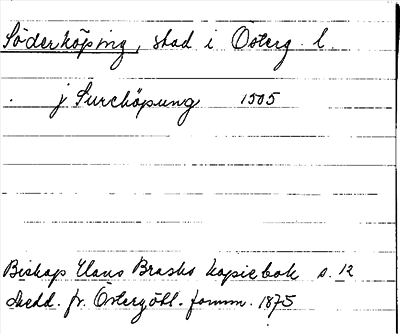 Söderköping, stad i Österg. l.
j Surcköpung 1505
Biskap Hans Brasks kopiebok s. 12
Medd. fr. Östergötl. fornm. 1875